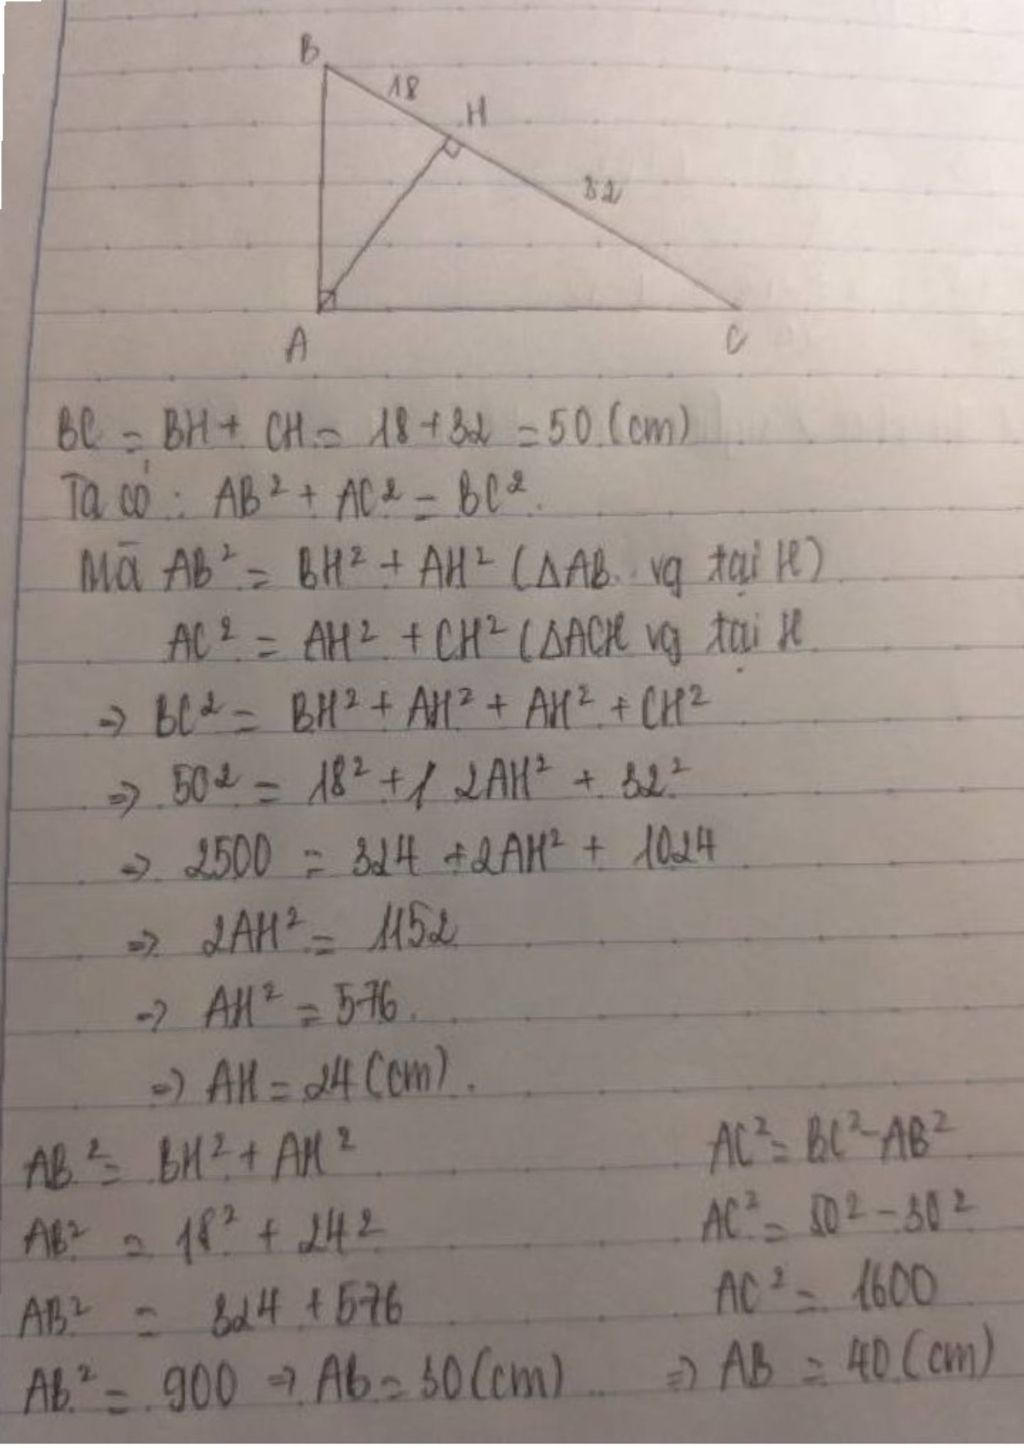 B
18
H
32
A
C
BC = BH + CH = 18 + 32 = 50 (cm)
Ta có : AB² + AC² = BC².
Mà AB² = BH² + AH² (ΔAB vg tại H)
AC² = AH² + CH² (ΔACH vg tại H
=> BC² = BH² + AH² + AH² + CH²
=> 50² = 18² + 2AH² + 32²
=> 2500 = 324 + 2AH² + 1024
=> 2AH² = 1152
=> AH² = 576.
=> AH = 24 (cm).
AB² = BH² + AH²
AB² = 18² + 24²
AB² = 324 + 576
AB² = 900 => AB = 30 (cm)
AC² = BC² - AB²
AC² = 50² - 30²
AC² = 1600
=> AB = 40 (cm)